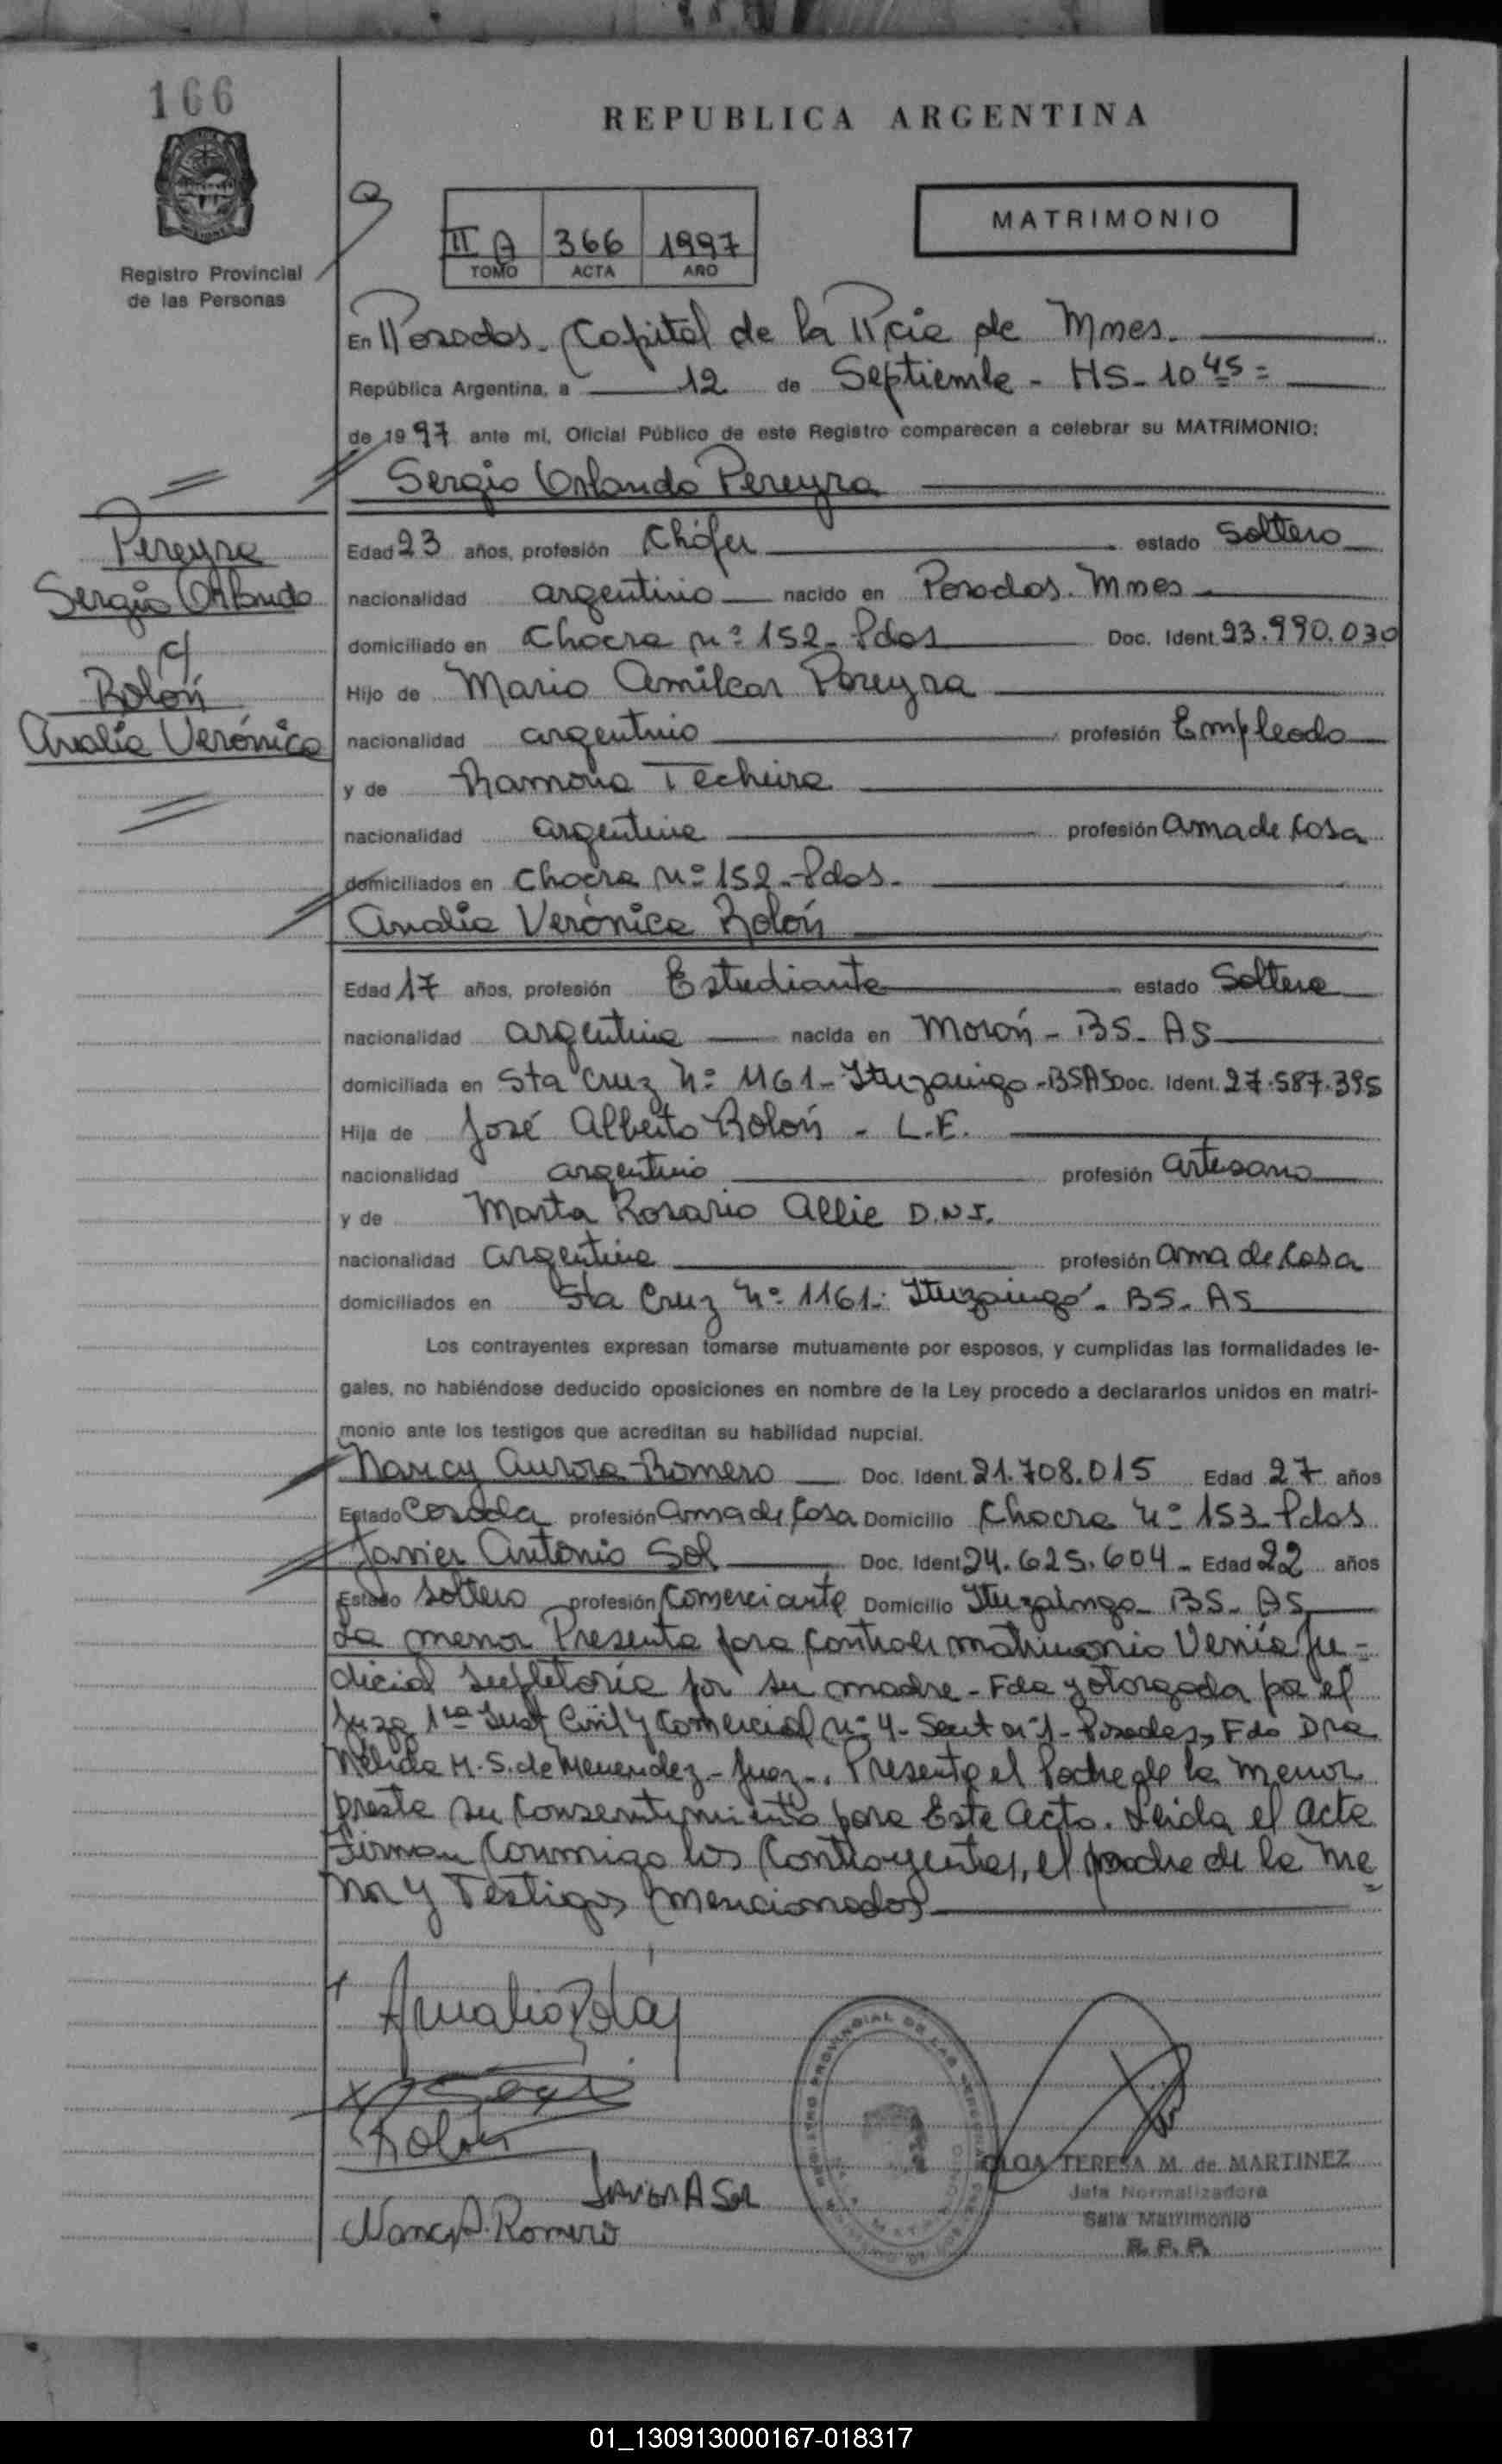 166
REPUBLICA ARGENTINA
MATRIMONIO
II A 366 1997
TOMO ACTA AÑO
Registro Provincial
de las Personas
En Posadas - Capital de la Pcia de Mnes.
República Argentina, a 12 de Septiembre - HS - 10 45 =
de 1997 ante mi, Oficial Público de este Registro comparecen a celebrar su MATRIMONIO:
Sergio Orlando Pereyra
Pereyra
Sergio Orlando
c/
Rolón
Analia Verónica
Edad 23 años, profesión Chófer estado Soltero
nacionalidad argentino nacido en Posadas. Mnes
domiciliado en Chacra nº 152 - Pdas Doc. Ident. 23.990.030
Hijo de Mario Amilcar Pereyra
nacionalidad argentino profesión Empleado
y de Ramona Techeira
nacionalidad argentina profesión ama de Casa
domiciliados en Chacra Nº 152 - Pdas.
Analia Verónica Rolón
Edad 17 años, profesión Estudiante estado Soltera
nacionalidad argentina nacida en Morón - BS. AS
domiciliada en Sta Cruz Nº 1161 - Ituzaingo - BSAS Doc. Ident. 27.587.395
Hija de José Alberto Rolón - L.E.
nacionalidad argentino profesión artesano
y de Marta Rosario Allie D.N.I.
nacionalidad argentina profesión ama de Casa
domiciliados en Sta Cruz Nº 1161. Ituzaingó - BS. AS
Los contrayentes expresan tomarse mutuamente por esposos, y cumplidas las formalidades le-
gales, no habiéndose deducido oposiciones en nombre de la Ley procedo a declararlos unidos en matri-
monio ante los testigos que acreditan su habilidad nupcial.
Nancy Aurora Romero Doc. Ident. 21.708.015 Edad 27 años
Estado Casada profesión ama de Casa Domicilio Chacra Nº 153 - Pdas
Javier Antonio Sol Doc. Ident 24.625.604 - Edad 22 años
Estado Soltero profesión Comerciante Domicilio Ituzaingo - BS. AS
La menor Presenta para contraer matrimonio Venia Ju-
dicial Supletoria por su madre - Fda y otorgada por el
Juzg 1ra Inst Civil y Comercial nº 4 - Secret nº 1 - Posadas, Fdo Dra
Nélida M. S. de Menendez - Juez -. Presente el Padre de la menor
presta su Consentimiento para Este Acto. Leida el acta
Firman Conmigo los Contrayentes, el padre de la me=
nor y Testigos mencionados
Analia Rolón
Rolón
Javier A Sol
Nancy A. Romero
OLGA TERESA M. de MARTINEZ
Jefa Normalizadora
Sala Matrimonio
R. P. P.
01_130913000167-018317